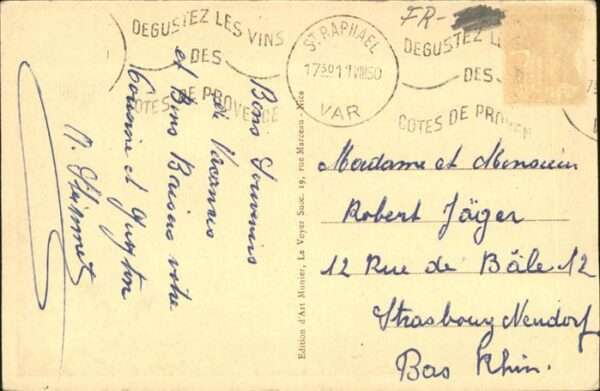 FR-
DEGUSTEZ LES VINS
DES
COTES DE PROVENCE
ST RAPHAEL
17 30 11 VIII 50
VAR
DEGUSTEZ L
DES
COTES DE PROVEN
Bons Souvenirs
de Vacances
et Bons Baisers votre
Cousine et
Edition d'Art Munier, La Veyer Succ. 19, rue Marceau - Nice
Madame et Monsieur
Robert Jäger
12 Rue de Bâle 12
Strasbourg Neudorf
Bas Rhin.